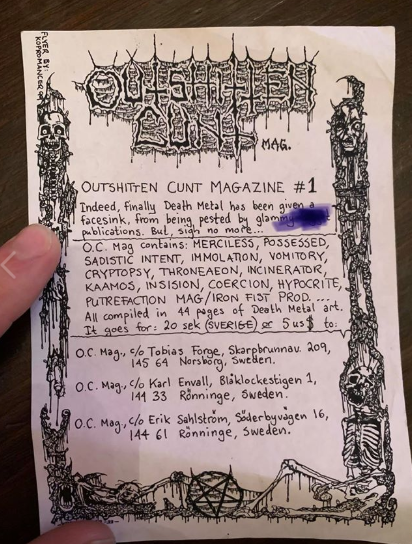 FLYER BY: KOPROMANCER
OUTSHITTEN
CUNT
MAG.
OUTSHITTEN CUNT MAGAZINE #1
Indeed, finally Death Metal has been given a
facesink, from being pested by glammy
publications. But, sigh no more...
O.C. Mag contains: MERCILESS, POSSESSED,
SADISTIC INTENT, IMMOLATION, VOMITORY,
CRYPTOPSY, THRONEAEON, INCINERATOR,
KAAMOS, INSISION, COERCION, HYPOCRITE,
PUTREFACTION MAG/IRON FIST PROD. ...
All compiled in 44 pages of Death Metal art.
It goes for: 20 sek (SVERIGE) or 5 us$ to:
O.C. Mag., c/o Tobias Forge, Skarpbrunnav. 209,
145 64 Norsborg, Sweden.
O.C. Mag., c/o Karl Envall, Blåklockestigen 1,
144 33 Rönninge, Sweden.
O.C. Mag., c/o Erik Sahlström, Söderbyvägen 16,
144 61 Rönninge, Sweden.